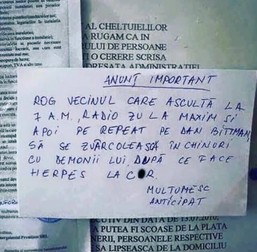 AL CHELTUIELILOR
A RUGAM CA IN
ULUI DE PERSOANE
I O CERERE SCRISA
DRESATA ADMINISTRATIEI
ANUNȚ IMPORTANT
ROG VECINUL CARE ASCULTĂ LA
7 A.M, RADIO ZU LA MAXIM ȘI
APOI PE REPEAT PE DAN BITTMAN,
SĂ SE ZVÂRCOLEASĂ ÎN CHINURI
CU DEMONII LUI, DUPĂ CE FACE
HERPES LA C R
MULTUMESC
ANTICIPAT
CUTIV DIN DATA DE
A PUTEA FI SCOASE DE LA PLATA
NERII, PERSOANELE RESPECTIVE
SA LIPSEASCA DE LA DOMICILIU